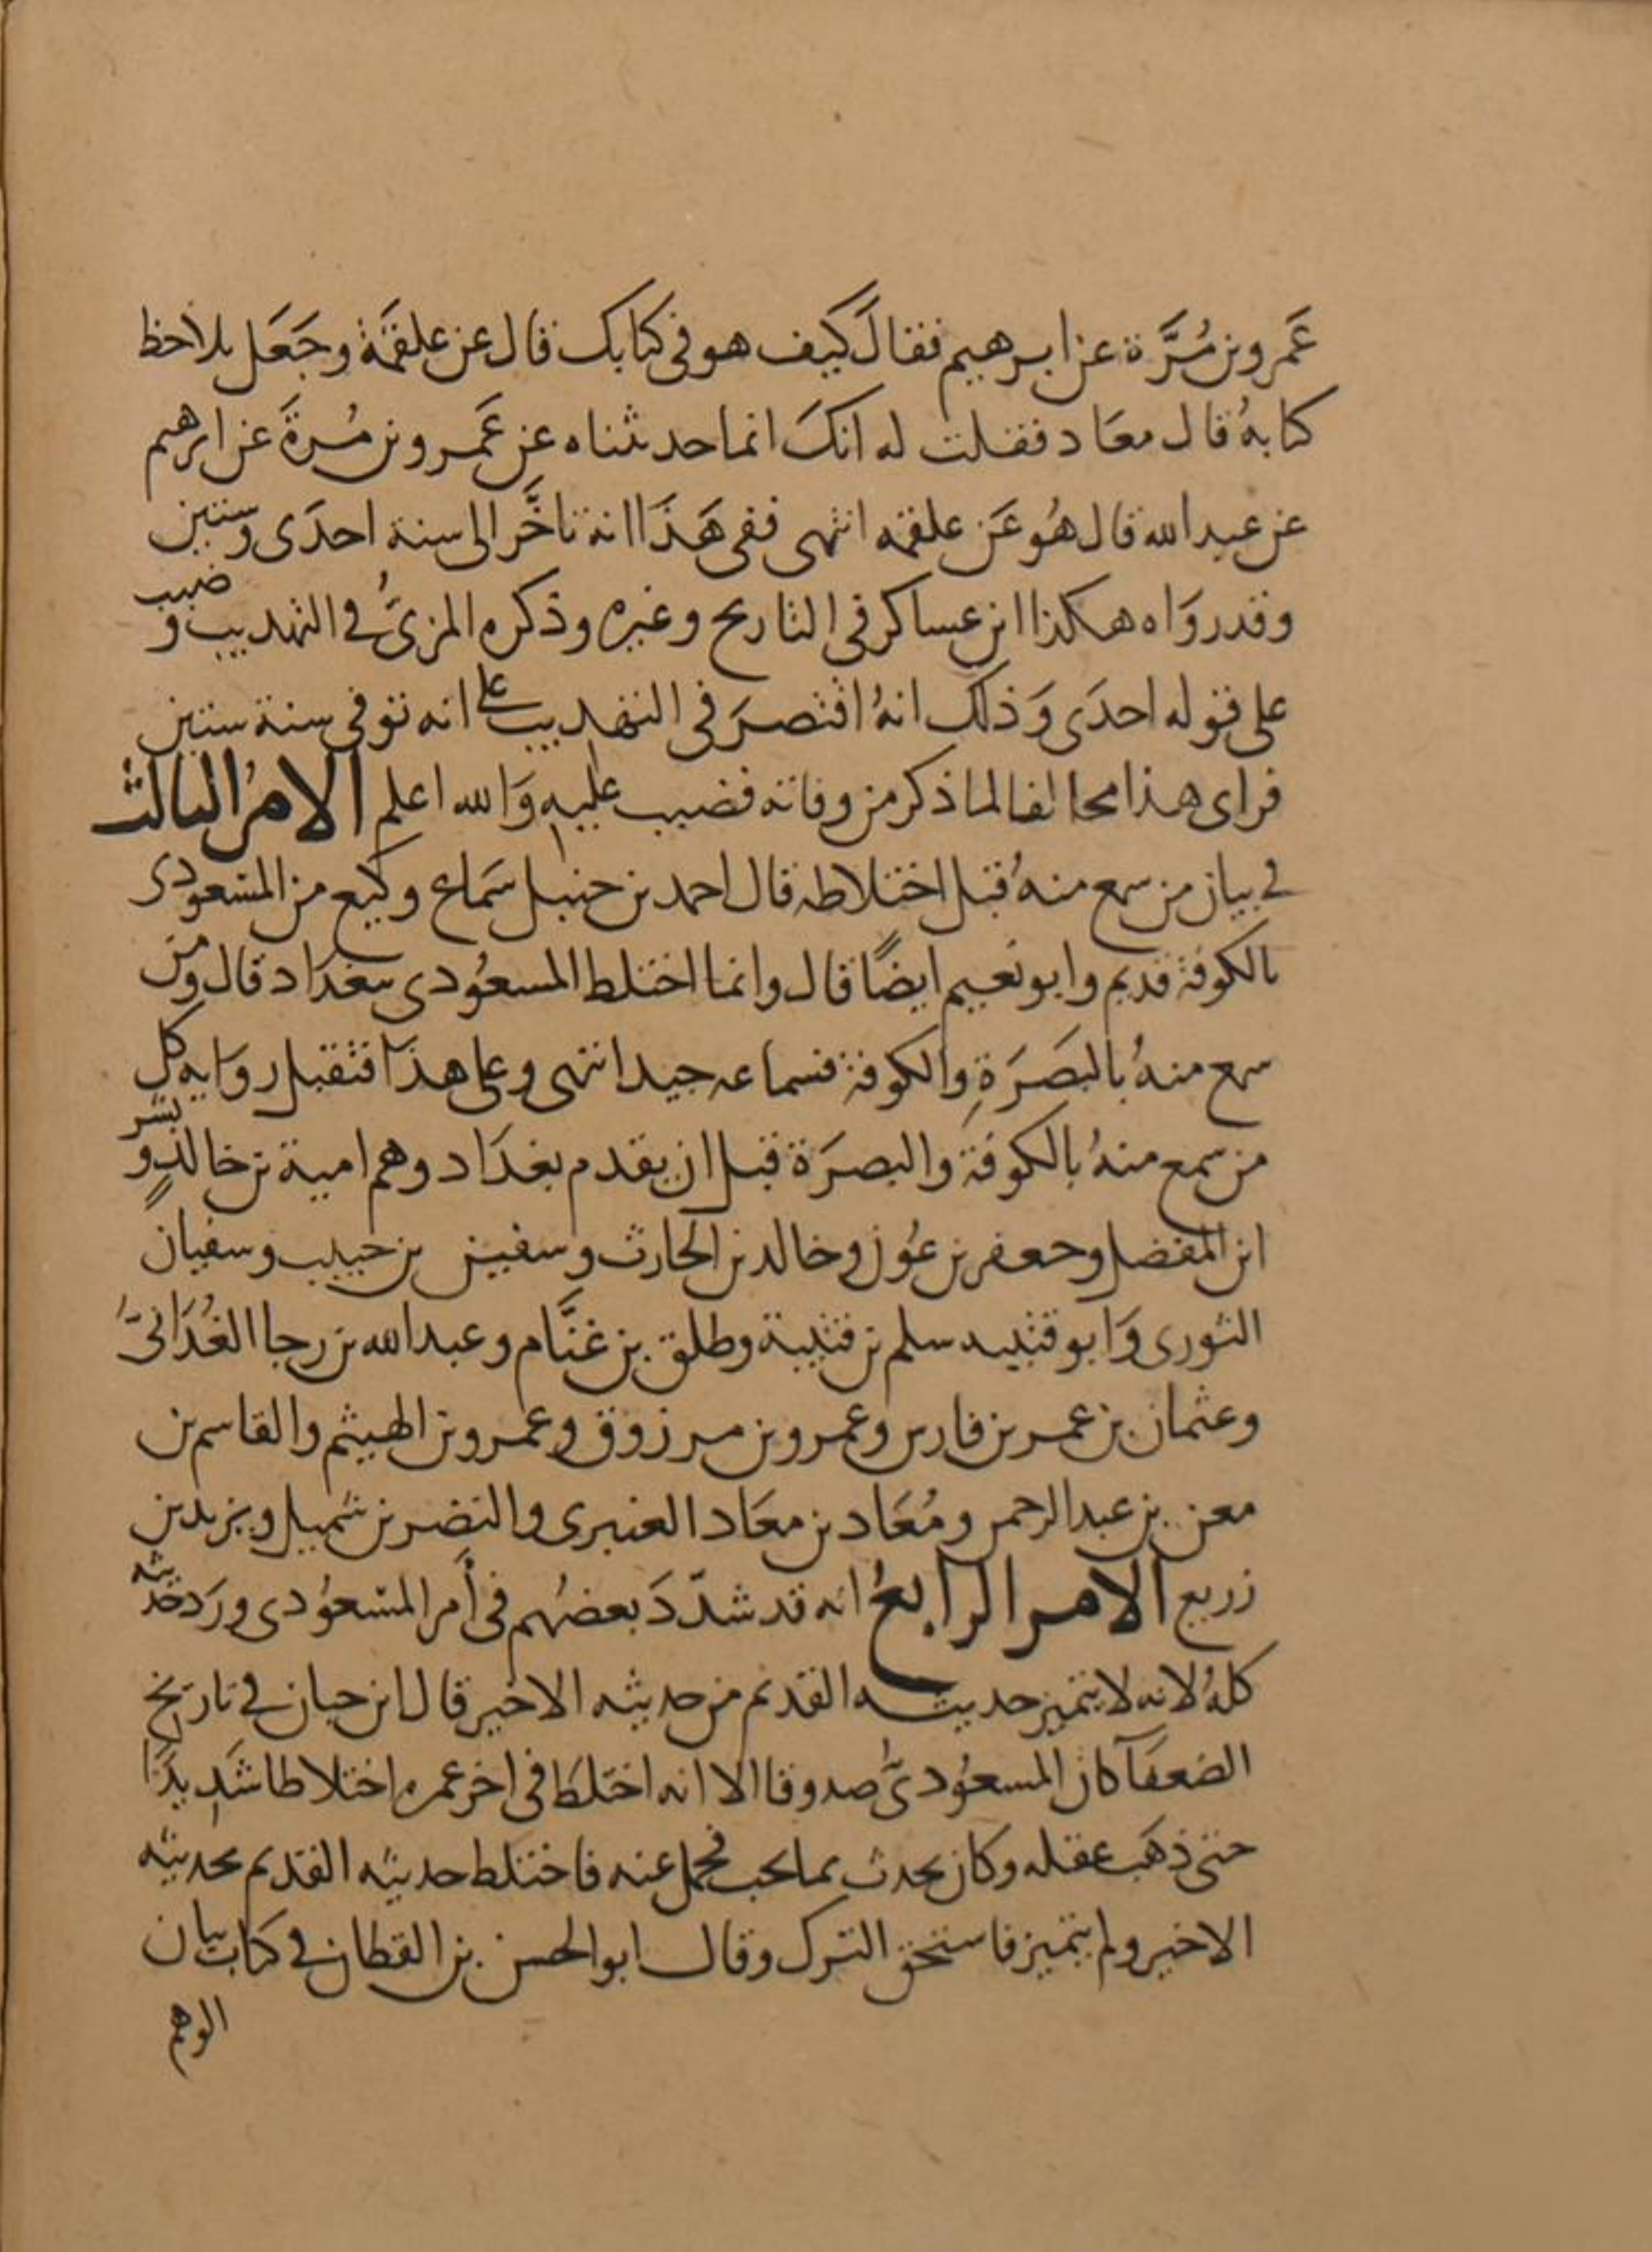 عَمرو بن مُرَّة عن ابرهيم فقالَ كيف هو في كتابك قال عن علقمَة وجَعَل يلاحظ
كتابهُ قال معَاد فقلت له انكَ انما حدثناه عن عَمرو بن مُرةَ عن ابرهيم
عن عبد الله قال هُو عَن علقمه انتهى ففي هَذَا انه تاخَّر الى سنة احدَى وستين
وقد روَاه هكذا ابن عساكر في التاريخ وغيره وذكره المزيُّ في التهذيب وضبب
على قوله احدَى وَذلك انهُ اقتصرَ في التهذيب على انه توفي سنة ستين
فراى هذا مخالفا لما ذكر من وفاته فضبب عليه وَالله اعلم الامرُ الثالث
في بيان من سمع منهُ قبل اختلاطه قال احمد بن حنبل سَماع وكيع من المسعودى
بالكوفة قديم وابو نعيم ايضًا قال وانما اختلط المسعُودي ببغدَاد قال ومن
سمع منهُ بالبَصَرَةِ والكوفة فسماعه جيد انتهى وعلى هذَا فتقبل روَايه كل
من سمع منهُ بالكوفة والبصرَة قبل ان يقدم بغدَاد وهم امية بن خالدٍ وبشر
ابن المفضل وجعفر بن عوُن وخالد بن الحارث وسفين بن حبيب وسفيان
الثوري وَابو قتيبه سلم بن قتيبة وطلق بن غنَّام وعبد الله بن رجا الغُدَانيّ
وعثمان بن عمر بن فارس وعمرو بن مرزوق وعمرو بن الهيثم والقاسم بن
معن بن عبد الرحمن ومُعَاد بن معَاد العنبري والنضر بن شميل ويزيد بن
زريع الامر الرابعُ انه قد شدّدَ بعضهُم في أمر المسعُودي ورَد حديثه
كلهُ لانه لا يتميز حديثه القديم من حديثه الاخير قال ابن حبان في تاريخ
الضعفَآ كان المسعُوديُّ صدوقا الا انه اختلَط في اخر عمره اختلاطا شَديدًا
حتى ذهَب عقله وكان يحدث بما يحب فحمل عنه فاختلط حديثه القديم بحديثه
الاخير ولم يتميز فاستحق الترك وقال ابو الحسن بن القطان في كتاب بيان
الوهم